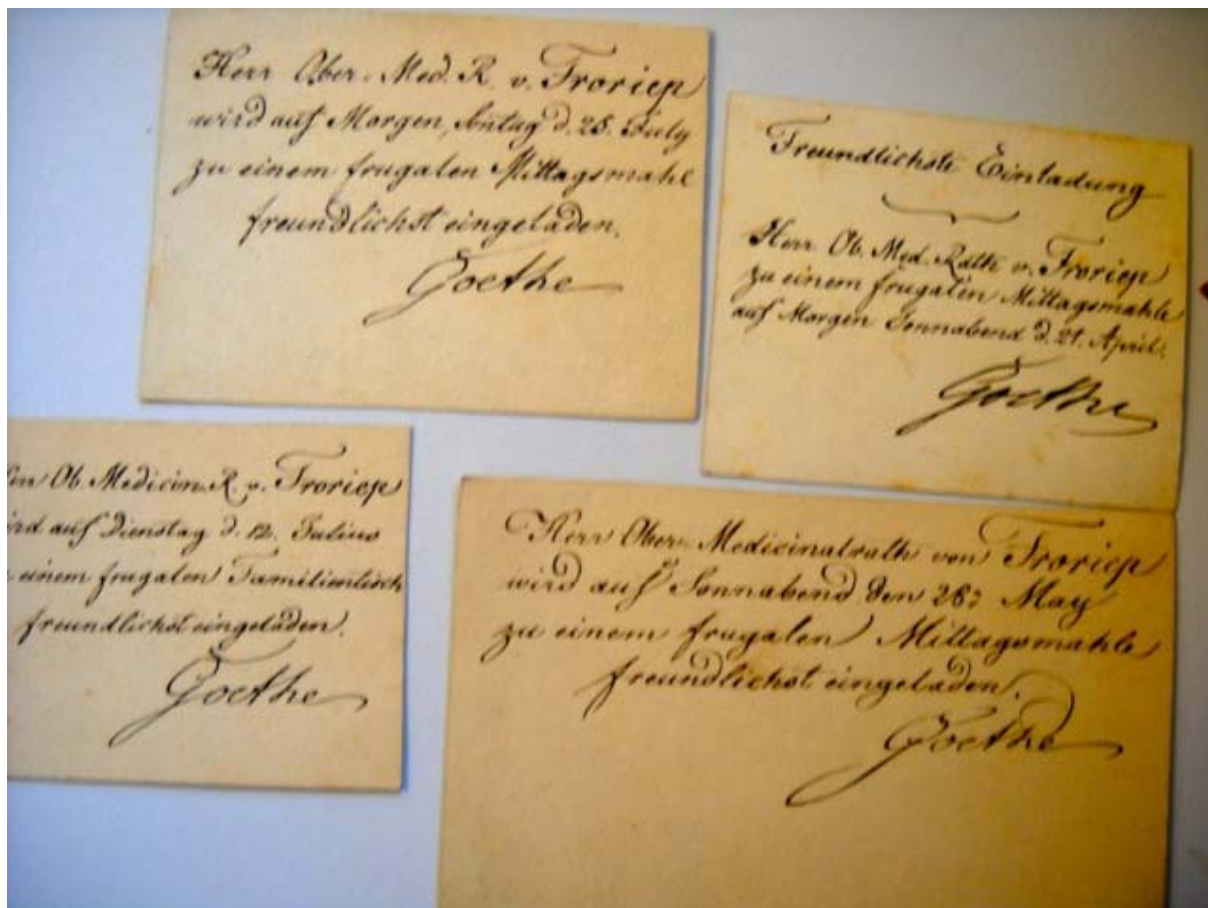 Herr Ober-Med. R. v. Froriep
wird auf Morgen, Sntag d. 28. July
zu einem frugalen Mittagsmahl
freundlichst eingeladen.
Goethe
Freundlichste Einladung
Herr Ob. Med. Rath v. Froriep
zu einem frugalen Mittagsmahle
auf Morgen Sonnabend d. 21. April.
Goethe
Ob. Medicin. R. v. Froriep
auf Dienstag d. 12. Julius
einem frugalen Familientisch
freundlichst eingeladen.
Goethe
Herr Ober-Medicinalrath von Froriep
wird auf Sonnabend den 28: May
zu einem frugalen Mittagsmahle
freundlichst eingeladen.
Goethe